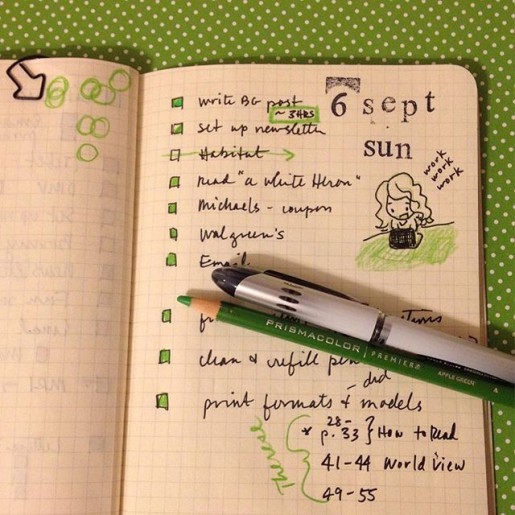 6 sept
sun
write BG post
~3HRS
set up newsletter
Habitat
read "a White Heron"
Michaels - coupon
Walgreen's
Email
items
clean & refill pen
- did
print formats & models
Therese
* p. 28-33 } How to Read
41-44 World View
49-55
work
work
work
PRISMACOLOR PREMIER
APPLE GREEN